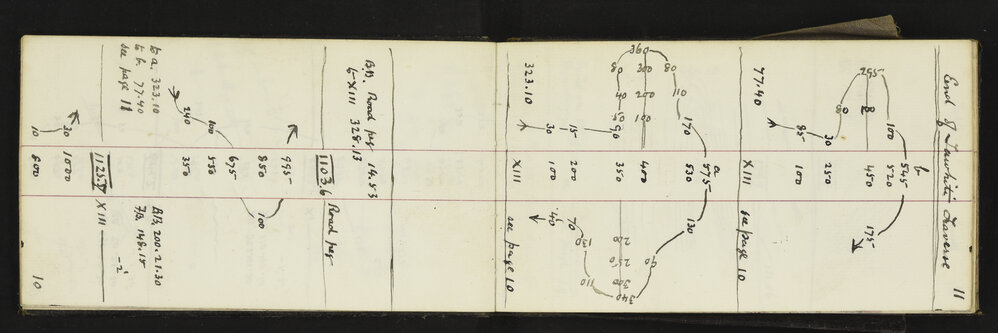 End of Tawhiti Traverse 11
b
545
100 520
595 450 175
30 250
85 100
77.40 XIII see page 10
a
575
170 530 130
110
80 90
360 300 200 100 400 340
80 40 50 350 200 250 300
90 110
15 200 70 130
30 100 40
323.10 XIII see page 10
B.B. Road peg 14.53
to XIII 328.13
1103.6 Road peg
995
850 100
675
100 550
240 350
to a. 323.10 B.B. 200.21.30
to b. 77.40 F.B. 148.15
see page 11 -2'
1125.7 XIII
30 1000
10 800 10